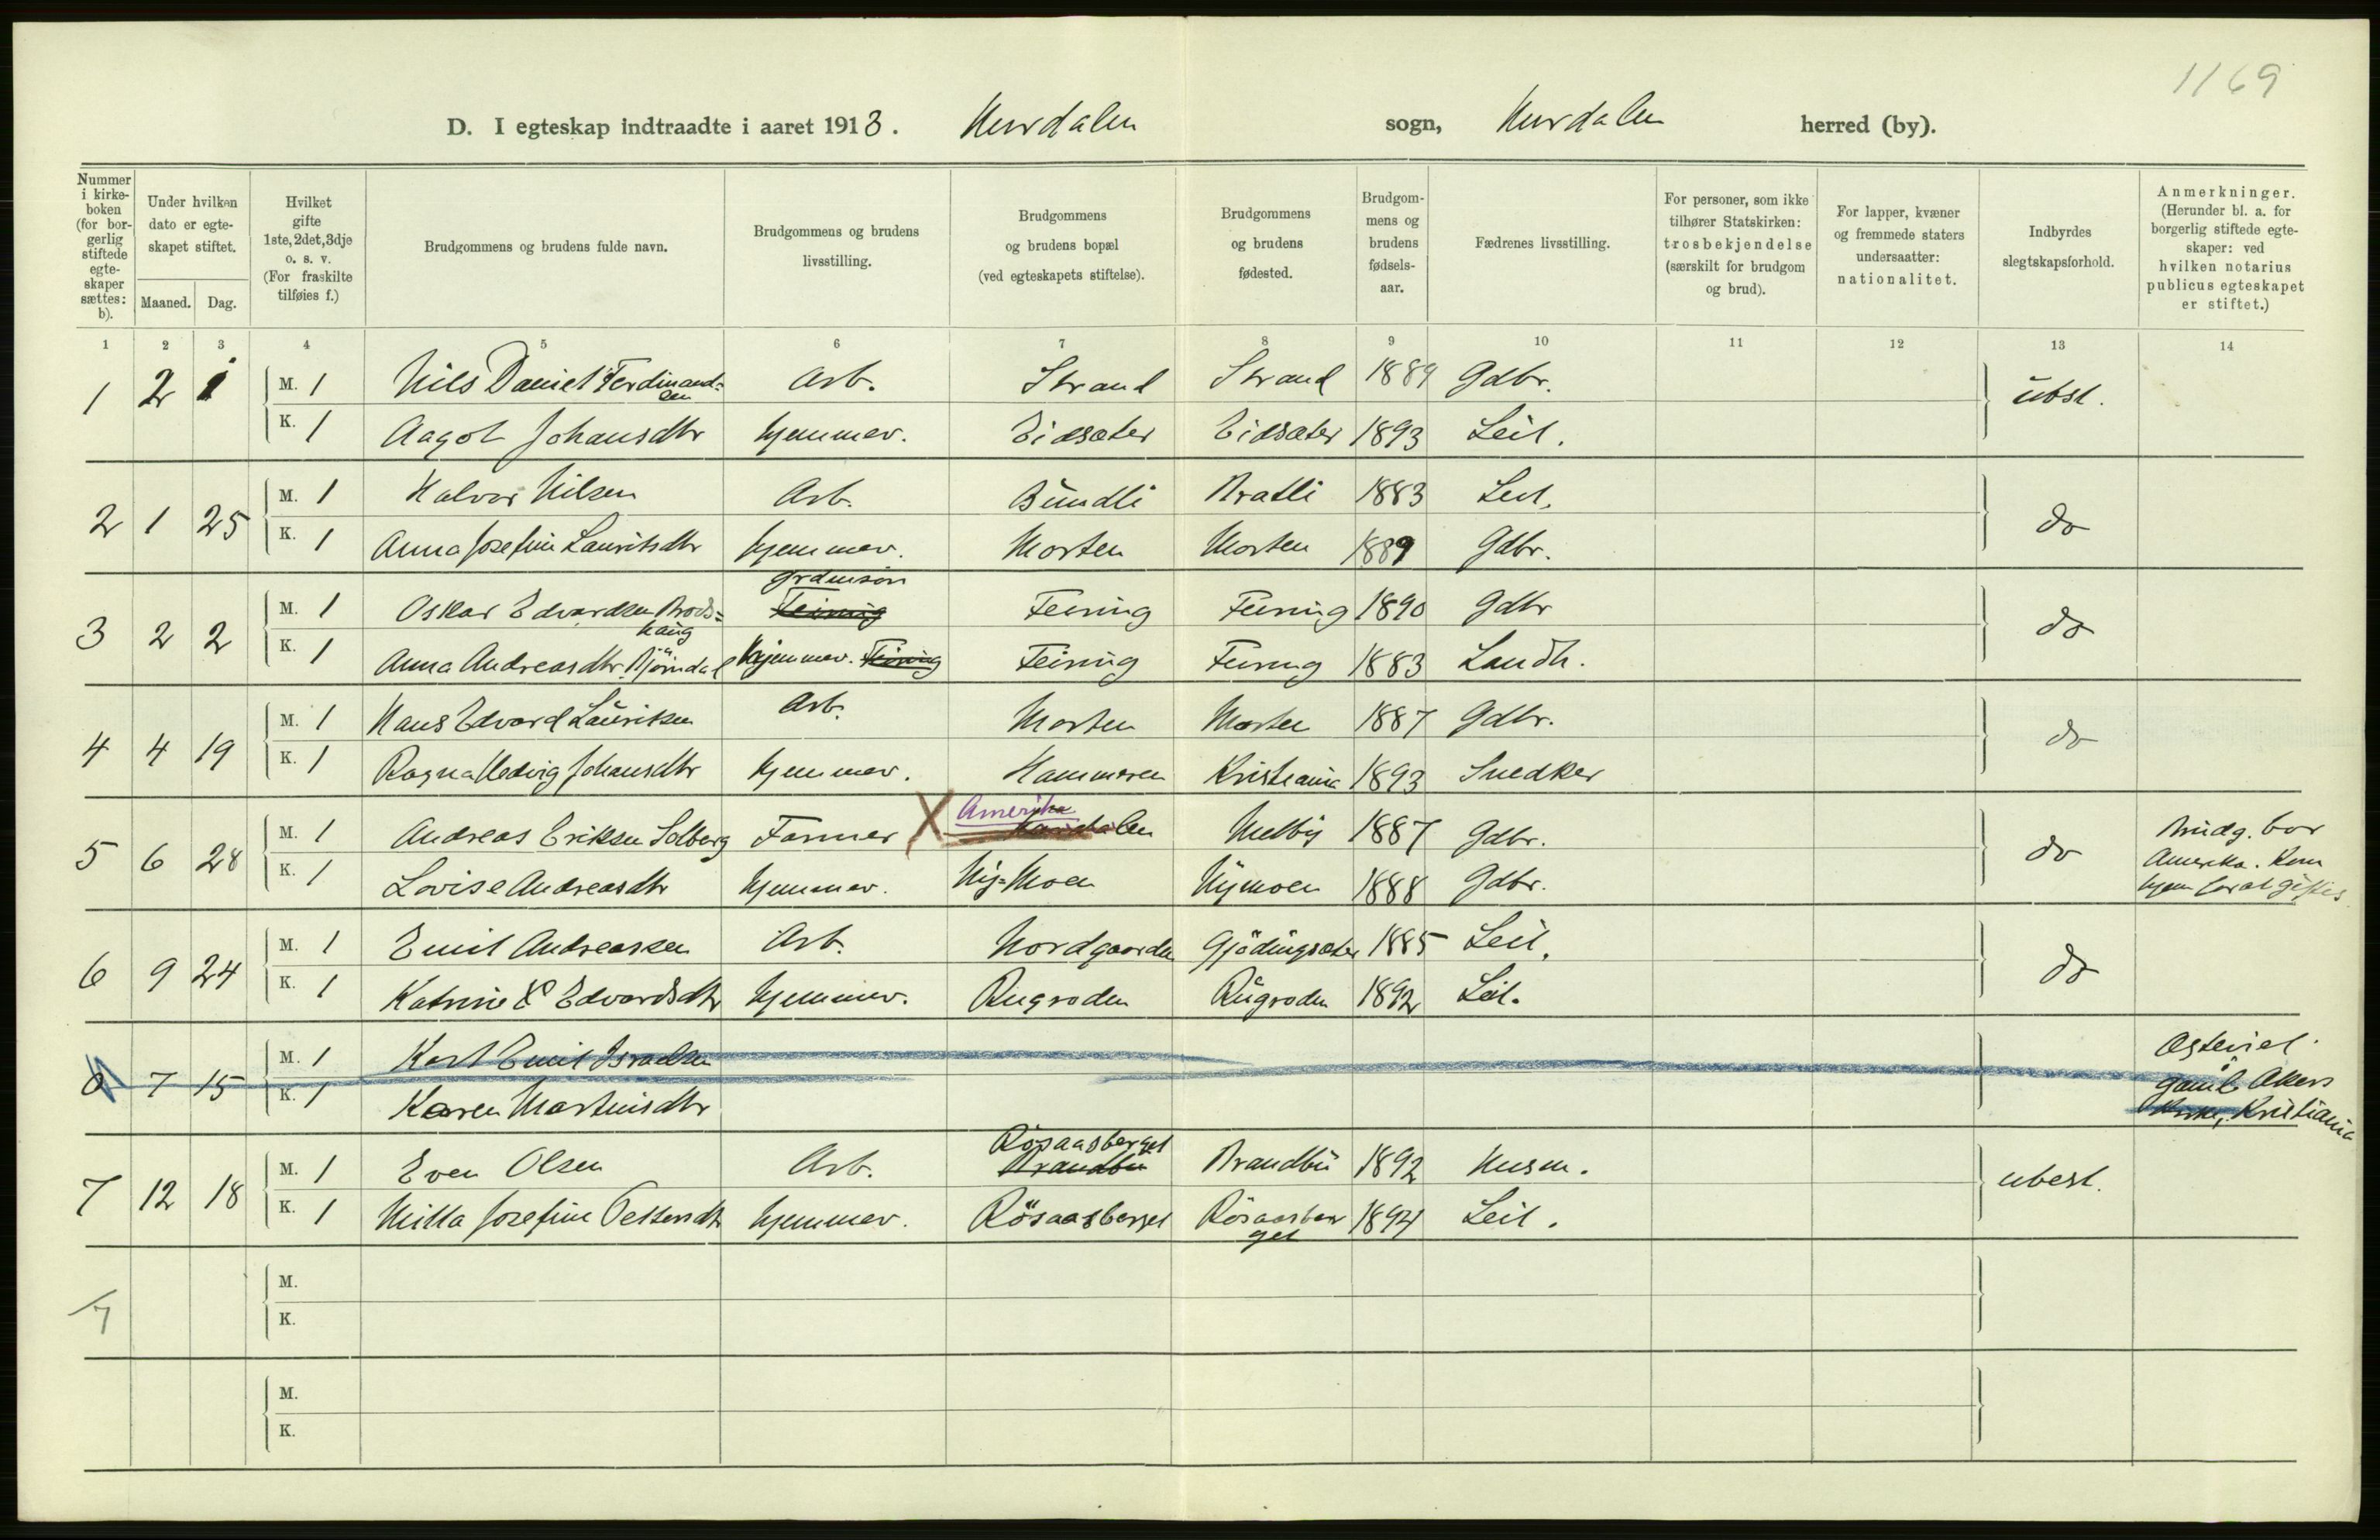 1169
D. I egteskap indtraadte i aaret 1913. Hurdalen sogn, Hurdalen herred (by).
Nummer i kirkeboken (for borgerlig stiftede egteskaper sættes: b).
Under hvilken dato er egteskapet stiftet.
Maaned. Dag.
Hvilket gifte 1ste, 2det, 3dje o. s. v. (For fraskilte tilføies f.)
Brudgommens og brudens fulde navn.
Brudgommens og brudens livsstilling.
Brudgommens og brudens bopæl (ved egteskapets stiftelse).
Brudgommens og brudens fødested.
Brudgommens og brudens fødselsaar.
Fædrenes livsstilling.
For personer, som ikke tilhører Statskirken: trosbekjendelse (særskilt for brudgom og brud).
For lapper, kvæner og fremmede staters undersaatter: nationalitet.
Indbyrdes slegtskapsforhold.
Anmerkninger. (Herunder bl. a. for borgerlig stiftede egteskaper: ved hvilken notarius publicus egteskapet er stiftet.)
1 2 3 4 5 6 7 8 9 10 11 12 13 14
1 2 1 M. 1 Nils Daniel Ferdinandsen Arb. Strand Strand 1889 Gdbr. ubsl.
K. 1 Aagot Johansdtr hjemmev. Eidsæter Eidsæter 1893 Leil.
2 1 25 M. 1 Halvor Nilsen Arb. Bundli Bratli 1883 Leil. do
K. 1 Anna Josefine Lauritsdtr hjemmev. Morten Morten 1889 Gdbr.
3 2 2 M. 1 Oskar Edvardsen Brodshaug Grdmsøn Feiring Feiring Feiring 1890 Gdbr do
K. 1 Anna Andreasdtr. Bjørndal hjemmev. Feiring Feiring Feiring 1883 Landh.
4 4 19 M. 1 Hans Edvard Lauritsen Arb. Morten Morten 1887 Gdbr. do
K. 1 Ragna Hedvig Johansdtr hjemmev. Hammeren Kristiania 1893 Snedker
5 6 28 M. 1 Andreas Eriksen Solberg Farmer X Amerika Hurdalen Melby 1887 Gdbr. do Brudg. bor Amerika. Kom hjem for at giftes
K. 1 Lovise Andreasdtr hjemmev. Ny-Moen Nymoen 1888 Gdbr.
6 9 24 M. 1 Emil Andreassen Arb. Nordgaarden Gjødingsæter 1885 Leil. do
K. 1 Katrine Edvardsdtr hjemmev. Rugroden Rugroden 1892 Leil.
7 15 M. 1 Karl Emil Israelsen Østeviet Gaml Akers Kirke, Kristiania
K. 1 Karen Martinsdtr
7 12 18 M. 1 Even Olsen Arb. Røsaasberget Brandbu Brandbu 1892 Husm. ubesl.
K. 1 Milla Josefine Pettersdtr hjemmev. Røsaasberget Røsaasberget 1894 Leil.
7 M.
K.
M.
K.